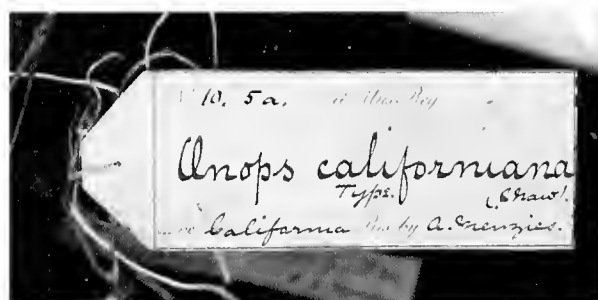 10. 5a. in Mus. Reg
Anops californiana
Type. (Shaw).
California by A. Menzies.